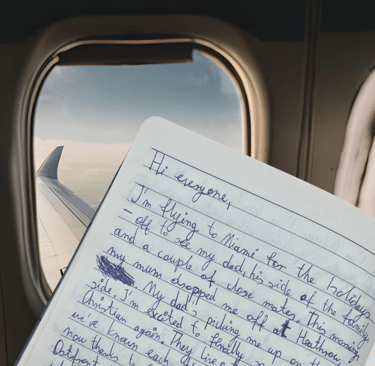 Hi everyone,
I'm flying to Miami for the holidays
- off to see my dad, his side of the family
and a couple of close mates. This morning
my mum dropped me off at Heathrow,
My dad's picking me up on the
side. I'm excited to finally
Christien again. They live
we've known each
now thanks to